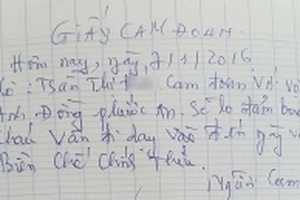 GIẤY CAM ĐOAN.
Hôm nay, ngày, 7/1/2016
Cô: Trần Thị Cam đoan Với vo
Anh Đồng phước An. Sẽ lo đảm bao
cháu Vân đi dạy vào
Biên Chế Chính thức.
Người Cam